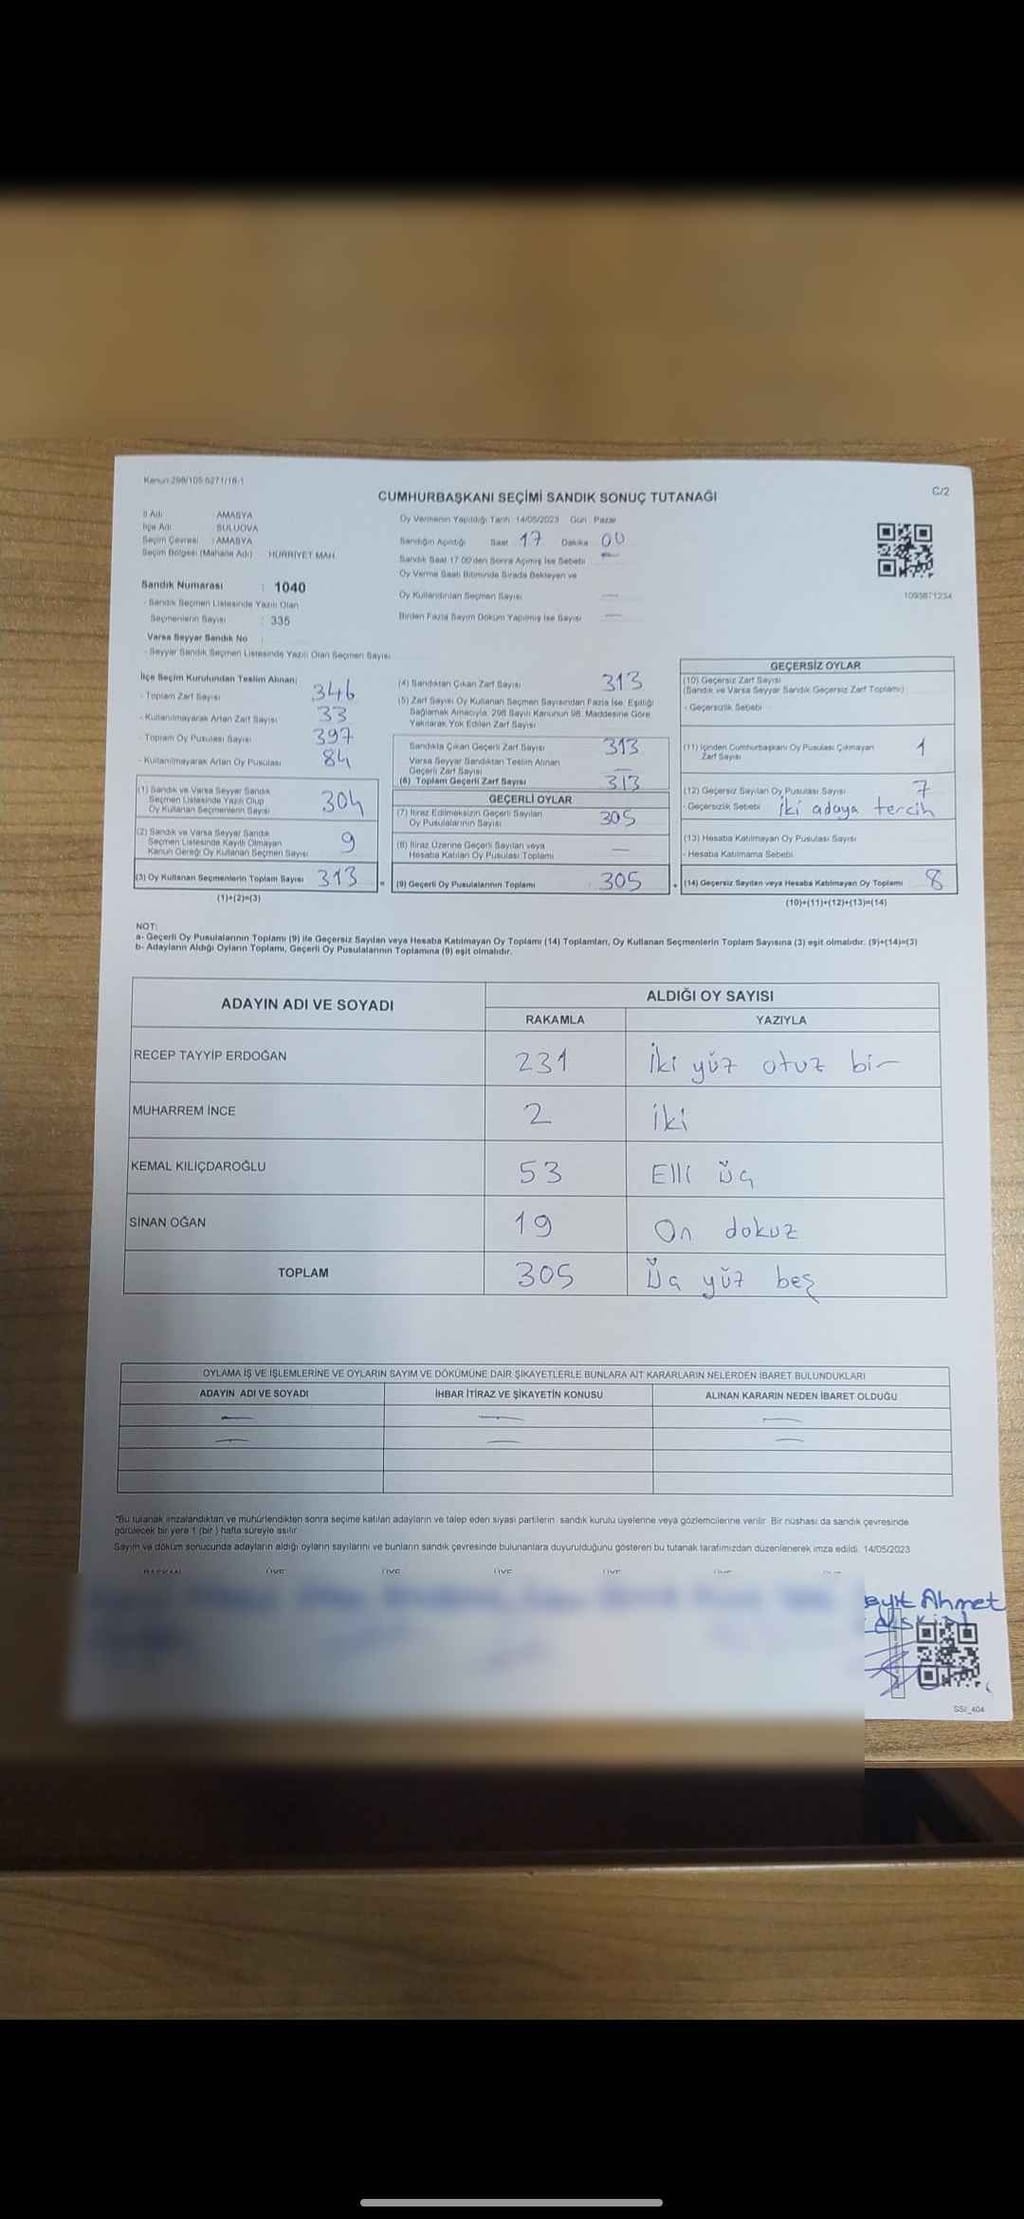 Kanun:298/105-6271/16-1
CUMHURBAŞKANI SEÇİMİ SANDIK SONUÇ TUTANAĞI
C/2
İl Adı : AMASYA
İlçe Adı : SULUOVA
Seçim Çevresi : AMASYA
Seçim Bölgesi (Mahalle Adı) : HÜRRİYET MAH.
Oy Vermenin Yapıldığı Tarih : 14/05/2023 Gün : Pazar
Sandığın Açıldığı Saat : 17 Dakika : 00
Sandık Saat 17.00'den Sonra Açılmış İse Sebebi —
Oy Verme Saati Bitiminde Sırada Bekleyen ve
Oy Kullandırılan Seçmen Sayısı —
Birden Fazla Sayım Döküm Yapılmış İse Sayısı —
1095871234
Sandık Numarası : 1040
- Sandık Seçmen Listesinde Yazılı Olan
Seçmenlerin Sayısı : 335
Varsa Seyyar Sandık No :
- Seyyar Sandık Seçmen Listesinde Yazılı Olan Seçmen Sayısı
İlçe Seçim Kurulundan Teslim Alınan;
- Toplam Zarf Sayısı 346
- Kullanılmayarak Artan Zarf Sayısı 33
- Toplam Oy Pusulası Sayısı 397
- Kullanılmayarak Artan Oy Pusulası 84
(1) Sandık ve Varsa Seyyar Sandık
Seçmen Listesinde Yazılı Olup
Oy Kullanan Seçmenlerin Sayısı 304
(2) Sandık ve Varsa Seyyar Sandık
Seçmen Listesinde Kayıtlı Olmayan
Kanun Gereği Oy Kullanan Seçmen Sayısı 9
(3) Oy Kullanan Seçmenlerin Toplam Sayısı 313
(1)+(2)=(3)
(4) Sandıktan Çıkan Zarf Sayısı 313
(5) Zarf Sayısı Oy Kullanan Seçmen Sayısından Fazla İse, Eşitliği
Sağlamak Amacıyla, 298 Sayılı Kanunun 98. Maddesine Göre
Yakılarak Yok Edilen Zarf Sayısı
Sandıkta Çıkan Geçerli Zarf Sayısı 313
Varsa Seyyar Sandıktan Teslim Alınan
Geçerli Zarf Sayısı —
(6) Toplam Geçerli Zarf Sayısı 313
GEÇERLİ OYLAR
(7) İtiraz Edilmeksizin Geçerli Sayılan
Oy Pusulalarının Sayısı 305
(8) İtiraz Üzerine Geçerli Sayılan veya
Hesaba Katılan Oy Pusulası Toplamı —
= (9) Geçerli Oy Pusulalarının Toplamı 305
GEÇERSİZ OYLAR
(10) Geçersiz Zarf Sayısı
(Sandık ve Varsa Seyyar Sandık Geçersiz Zarf Toplamı)
- Geçersizlik Sebebi
(11) İçinden Cumhurbaşkanı Oy Pusulası Çıkmayan
Zarf Sayısı 1
(12) Geçersiz Sayılan Oy Pusulası Sayısı 7
- Geçersizlik Sebebi iki adaya tercih
(13) Hesaba Katılmayan Oy Pusulası Sayısı
- Hesaba Katılmama Sebebi
+ (14) Geçersiz Sayılan veya Hesaba Katılmayan Oy Toplamı 8
(10)+(11)+(12)+(13)=(14)
NOT:
a- Geçerli Oy Pusulalarının Toplamı (9) ile Geçersiz Sayılan veya Hesaba Katılmayan Oy Toplamı (14) Toplamları, Oy Kullanan Seçmenlerin Toplam Sayısına (3) eşit olmalıdır. (9)+(14)=(3)
b- Adayların Aldığı Oyların Toplamı, Geçerli Oy Pusulalarının Toplamına (9) eşit olmalıdır.
ADAYIN ADI VE SOYADI
ALDIĞI OY SAYISI
RAKAMLA YAZIYLA
RECEP TAYYİP ERDOĞAN 231 İki yüz otuz bir
MUHARREM İNCE 2 iki
KEMAL KILIÇDAROĞLU 53 Elli üç
SİNAN OĞAN 19 On dokuz
TOPLAM 305 Üç yüz beş
OYLAMA İŞ VE İŞLEMLERİNE VE OYLARIN SAYIM VE DÖKÜMÜNE DAİR ŞİKAYETLERLE BUNLARA AİT KARARLARIN NELERDEN İBARET BULUNDUKLARI
ADAYIN ADI VE SOYADI İHBAR İTİRAZ VE ŞİKAYETİN KONUSU ALINAN KARARIN NEDEN İBARET OLDUĞU
— — —
— — —
*Bu tutanak imzalandıktan ve mühürlendikten sonra seçime katılan adayların ve talep eden siyasi partilerin sandık kurulu üyelerine veya gözlemcilerine verilir. Bir nüshası da sandık çevresinde
görülecek bir yere 1 (bir) hafta süreyle asılır.
Sayım ve döküm sonucunda adayların aldığı oyların sayılarını ve bunların sandık çevresinde bulunanlara duyurulduğunu gösteren bu tutanak tarafımızdan düzenlenerek imza edildi. 14/05/2023
Ahmet
SSI_404